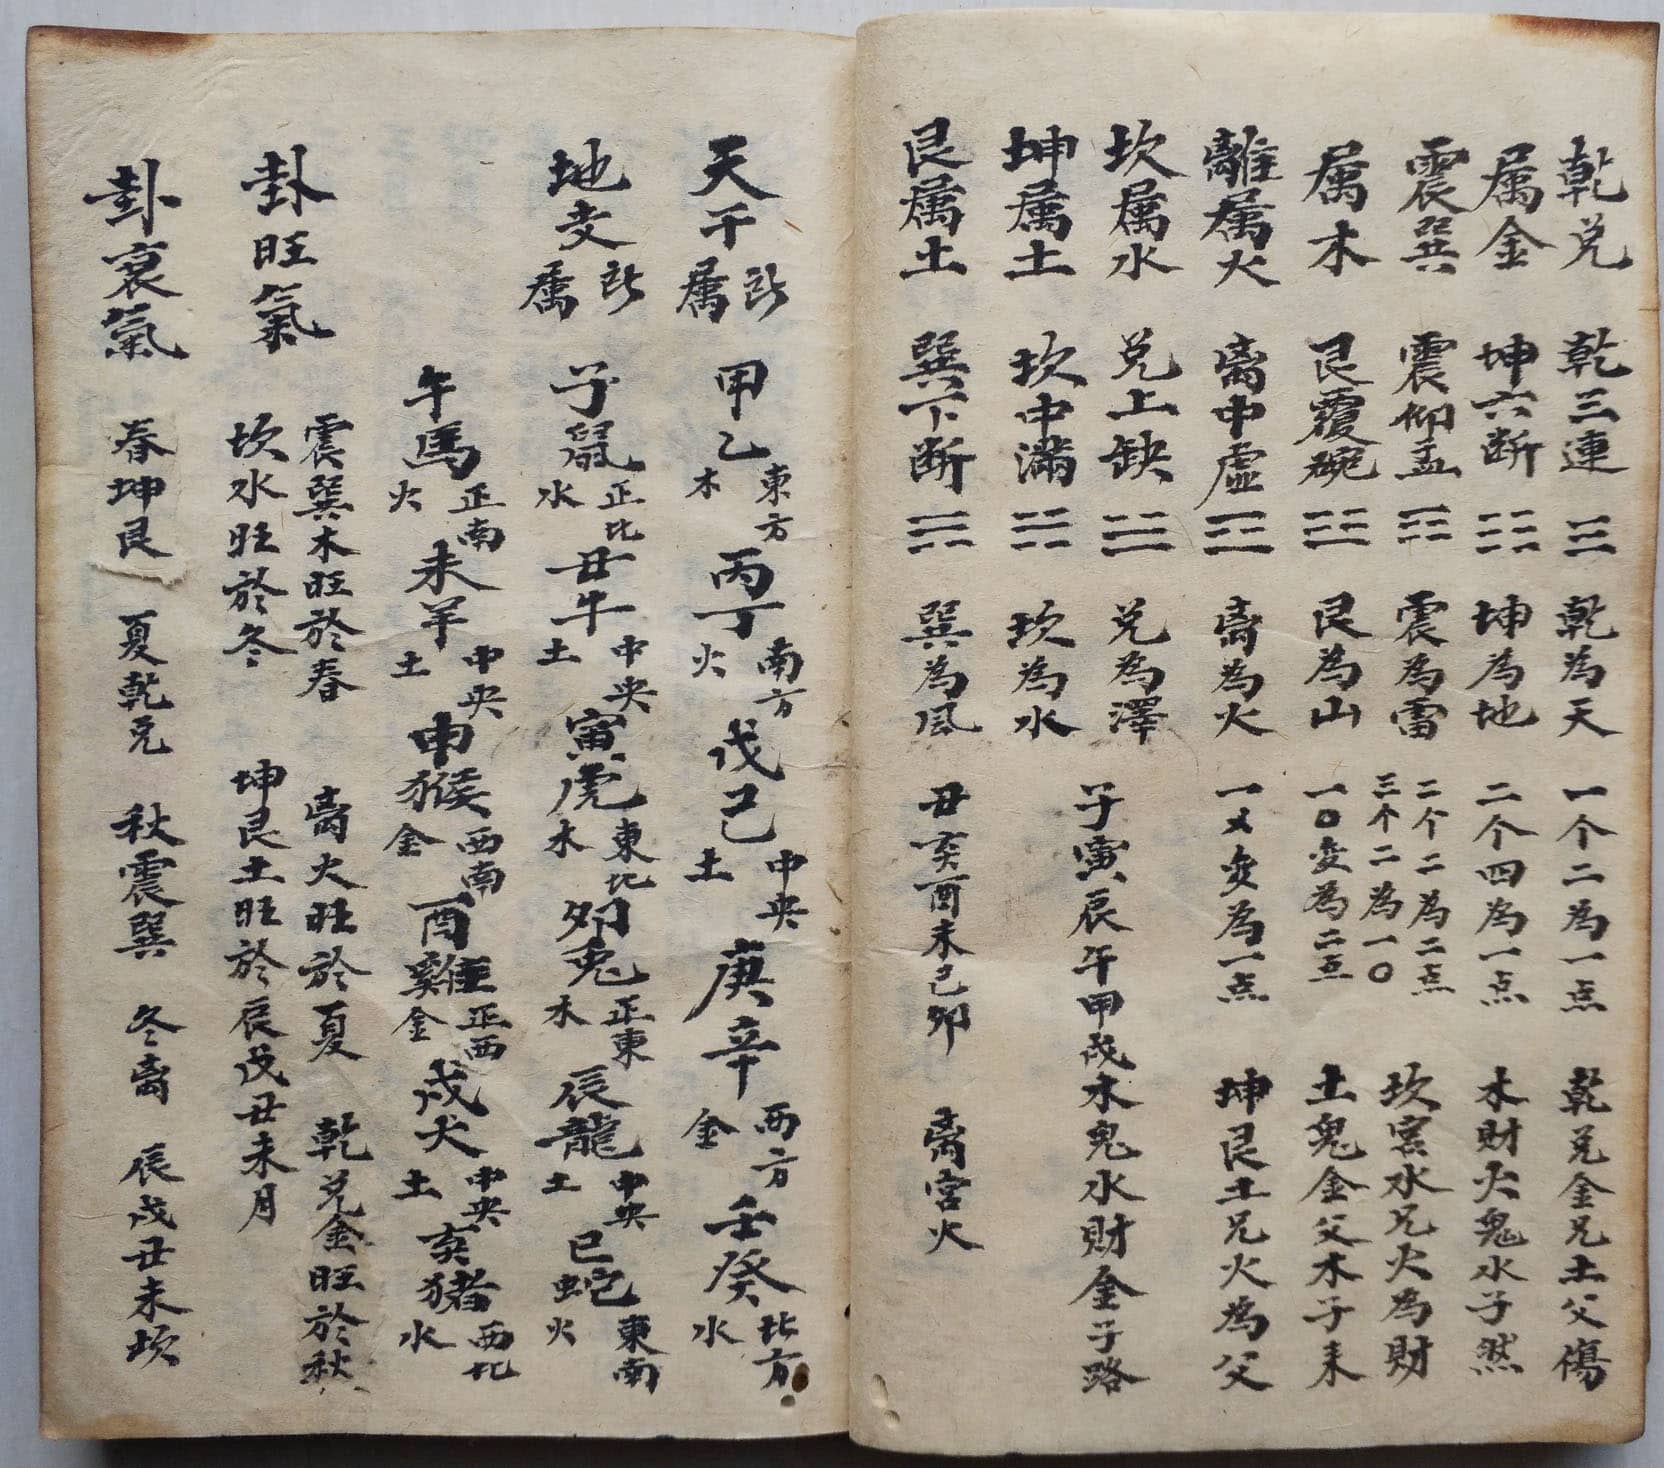 乾兑 乾三連 ☰ 乾為天 一个二為一点 乾兑金兄土父傷
属金 坤六断 ☷ 坤為地 二个四為一点 木財火鬼水子然
震巽 震仰盂 ☳ 震為雷 二个二為二点 三个二為一〇 坎宫水兄火為財
属木 艮覆碗 ☶ 艮為山 一〇变為二点 土鬼金父木子来
離属火 离中虚 ☲ 离為火 一乂变為一点 坤艮土兄火為父
坎属水 兑上缺 ☱ 兑為澤 子寅辰午甲戌 木鬼水財金子路
坤属土 坎中滿 ☵ 坎為水
艮属土 巽下断 ☴ 巽為风 丑亥酉未己卯 离宫火
天干所属 甲乙 東方木 丙丁 南方火 戊己 中央土 庚辛 西方金 壬癸 北方水
地支所属 子鼠 正北水 丑牛 中央土 寅虎 東北木 卯兔 正東木 辰龍 中央土 巳蛇 東南火
午馬 正南火 未羊 中央土 申猴 西南金 酉雞 正西金 戌犬 中央土 亥猪 西北水
卦旺氣 震巽木旺於春 离火旺於夏 乾兑金旺於秋
坎水旺於冬 坤艮土旺於辰戌丑未月
卦衰氣 春坤艮 夏乾兑 秋震巽 冬离 辰戌丑未坎